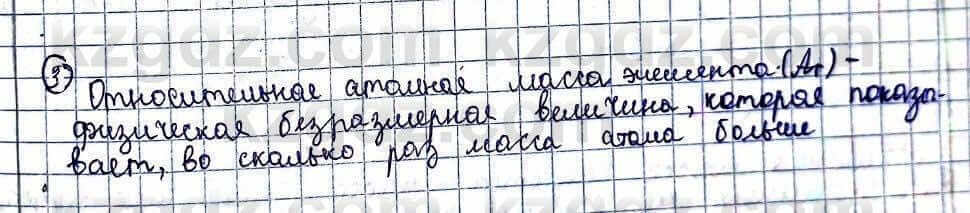 ③ Относительная атомная масса элемента (Ar) -
физическая безразмерная величина, которая показы-
вает, во сколько раз масса атома больше